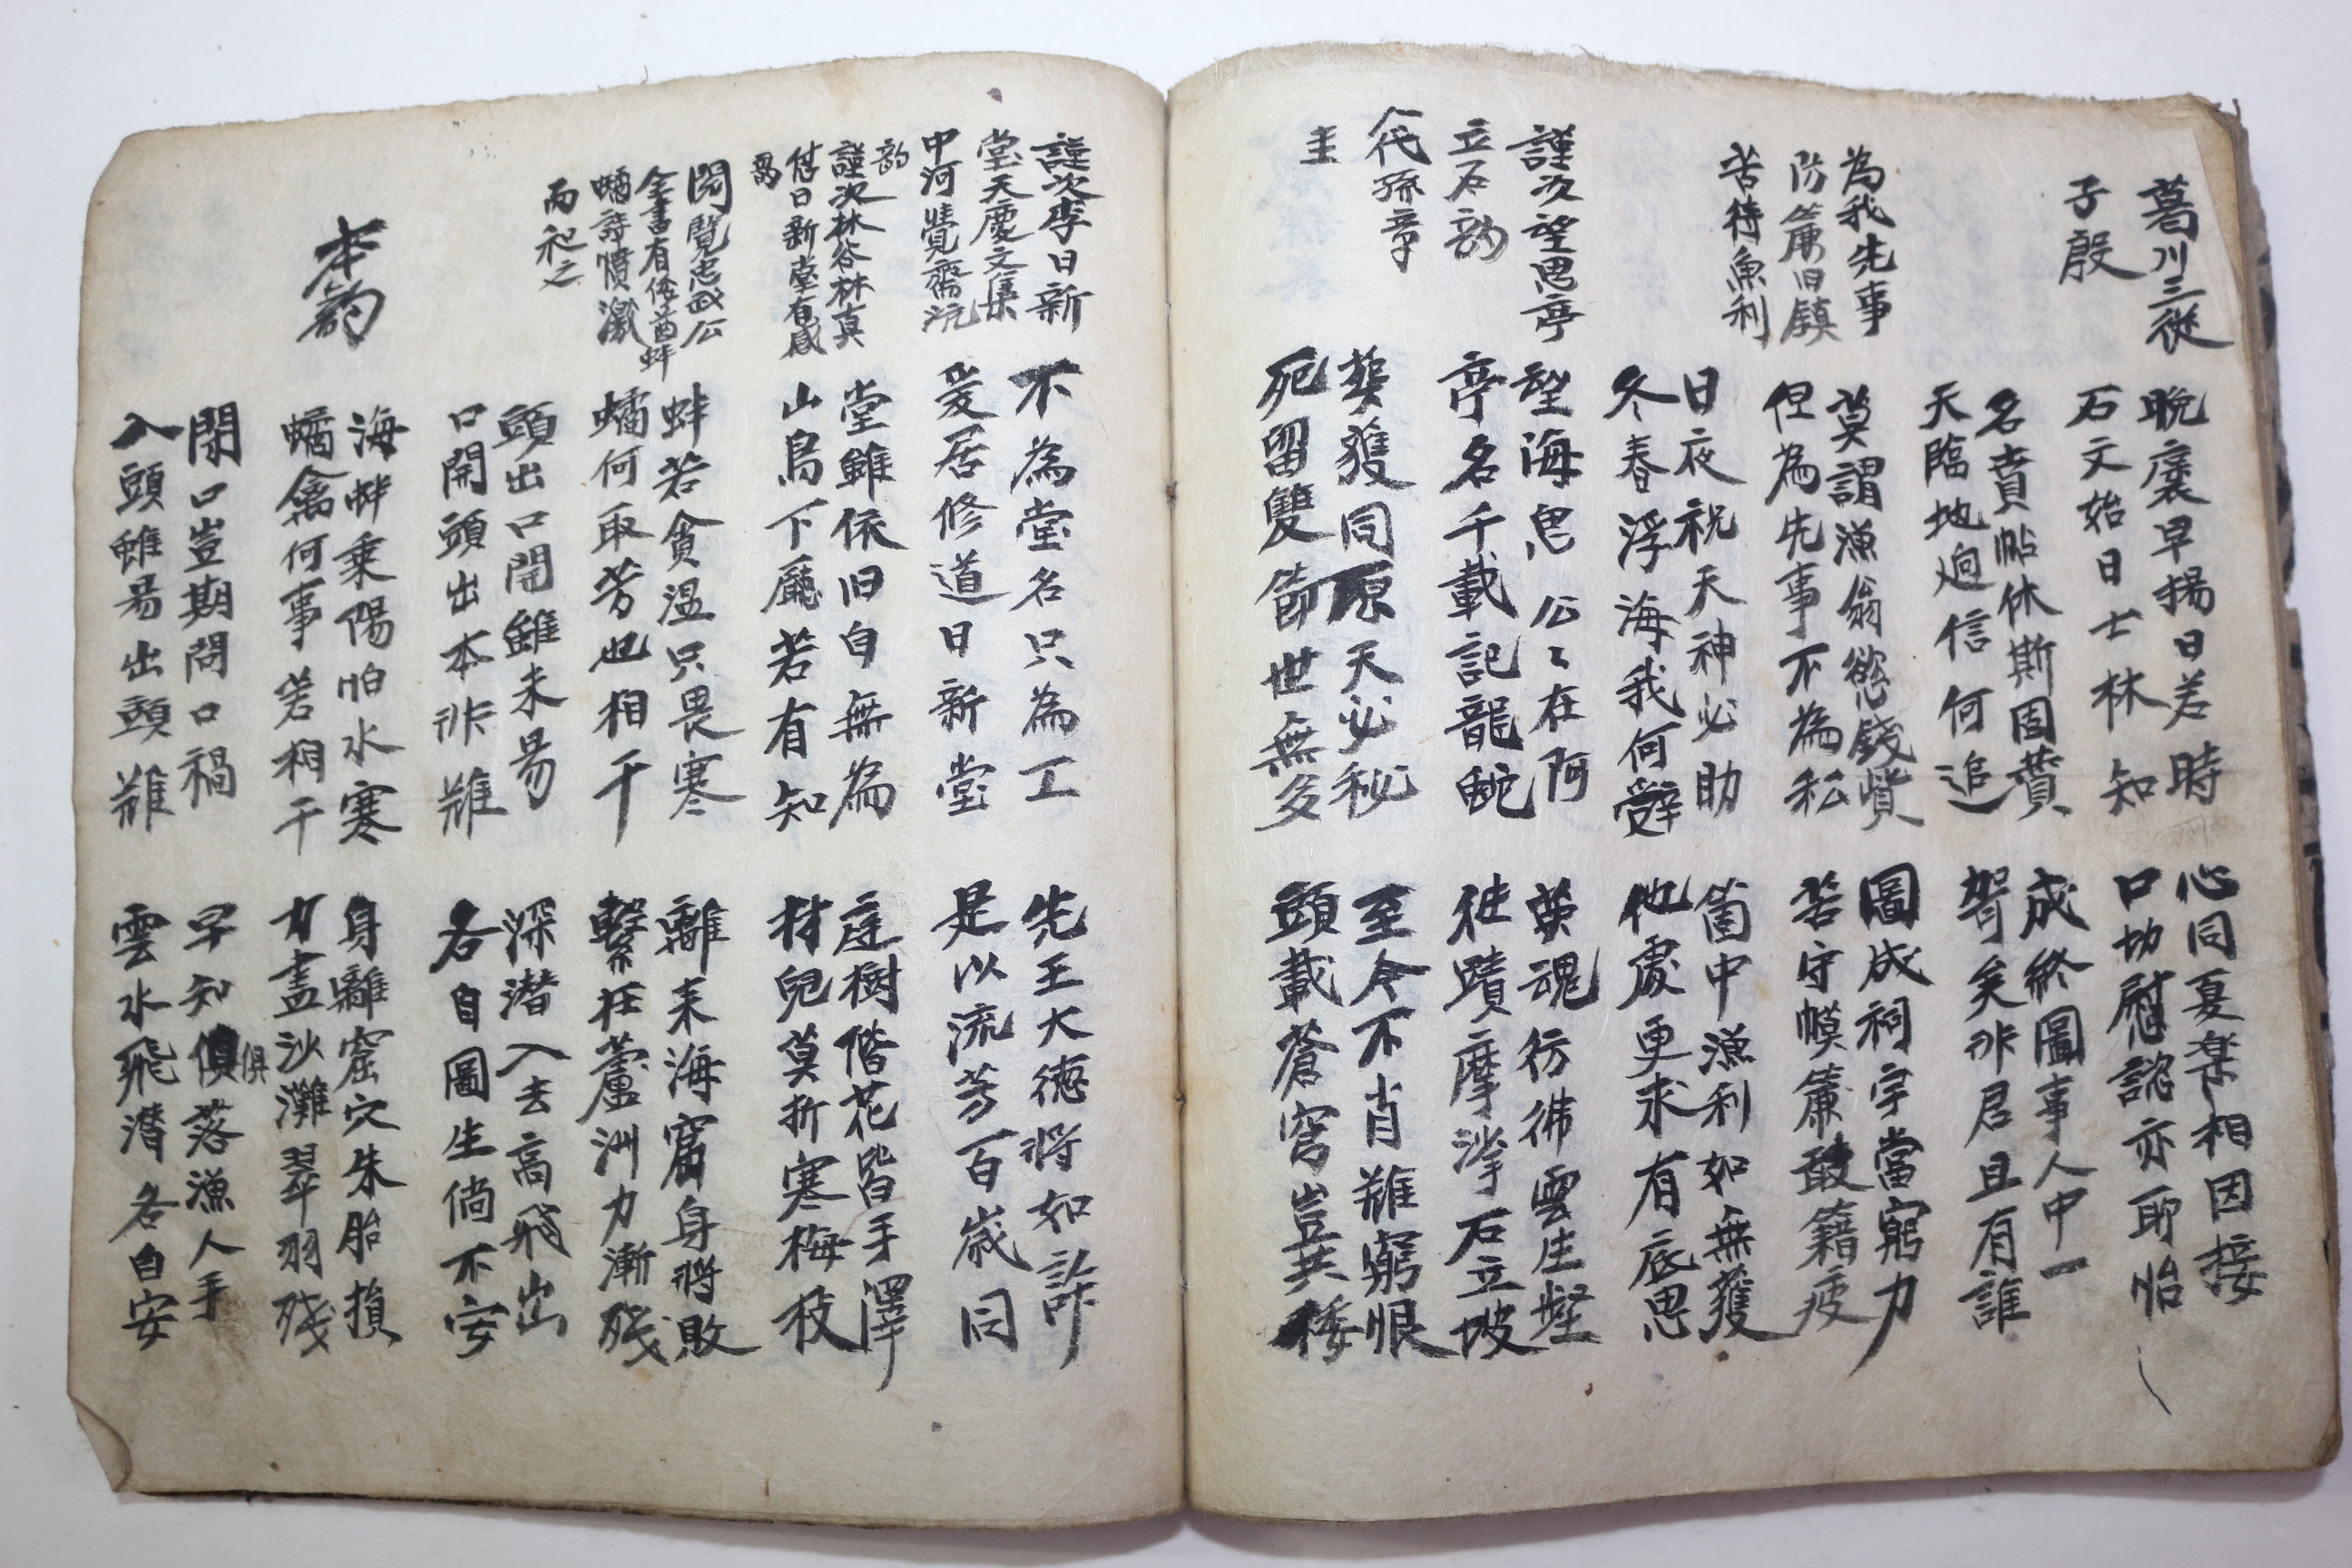 葛川三從
子殷
晩襄早揚日若時
心同憂樂相因接
石文始日士林知
口切慰認亦耶怡
名賁帖休斯固賛
成終圖事人中一
天臨地逈信何追
智矣非君且有誰
為我先事
防簾旧鎮
苦待魚利
莫謂漁翁慾錢貲
圖成祠宇當竆力
但為先事不為私
若守幙簾敢籍疲
日夜祝天神必助
箇中漁利如無獲
冬春浮海我何辭
他處更求有底思
謹次望思亭
立石韵
望海思公々在阿
英魂彷彿雲生壑
亭名千載記龍蛇
往蹟摩挲石立坡
八代孫章
圭
葬獲同原天必秘
至今不肖難窮恨
死留雙節世無多
頭載蒼穹豈共
謹次李日新
堂天慶文集
中河覺齋沆
韵
不為堂名只為工
先王大德將如許
爰居修道日新堂
是以流芳百歲同
謹次林谷林真
怤日新堂有感
韵
堂雖依旧自無為
庭樹偕花皆手澤
山鳥下廳若有知
材兒莫折寒梅枝
閱覽忠武公
全書有倭酋蚌
蟠詩憤激
而和之
蚌若貪溫只畏寒
離来海窟身將敗
蟠何取芳也相干
繫在蘆洲力漸殘
頭出口開雖未易
深潜入去高飛出
口開頭出本非難
各自圖生倘不安
本韵
海蚌乗陽怕水寒
身離窟穴朱胎損
蟠禽何事若相干
力盡沙灘翠羽殘
閉口豈期問口禍
早知俱落漁人手
入頭雖易出頭難
雲水飛潜各自安